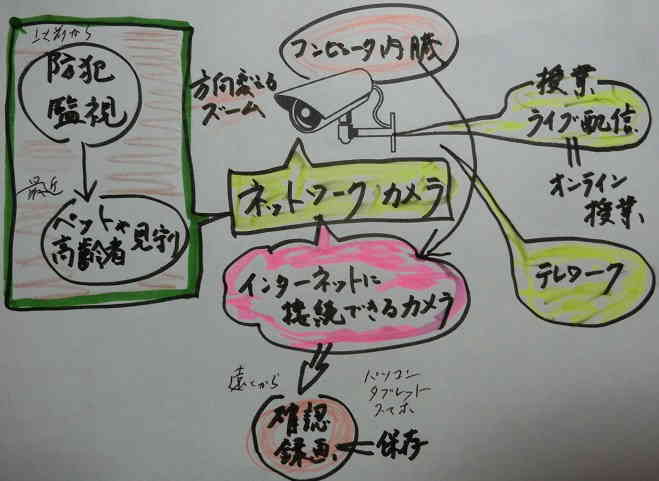 以前から
防犯
監視
最近
ペットや
高齢者
見守り
コンピュータ内臓
方向変える
ズーム
ネットワークカメラ
インターネットに
接続できるカメラ
遠くから
パソコン
タブレット
スマホ
確認
録画
保存
授業
ライブ配信
オンライン
授業
テレワーク